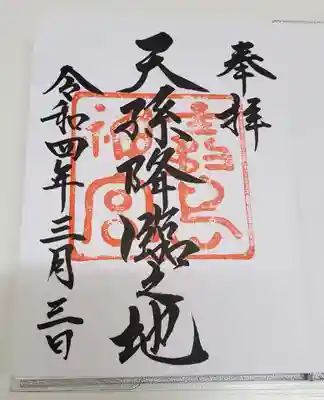 奉拝
天孫降臨之地
令和四年三月三日